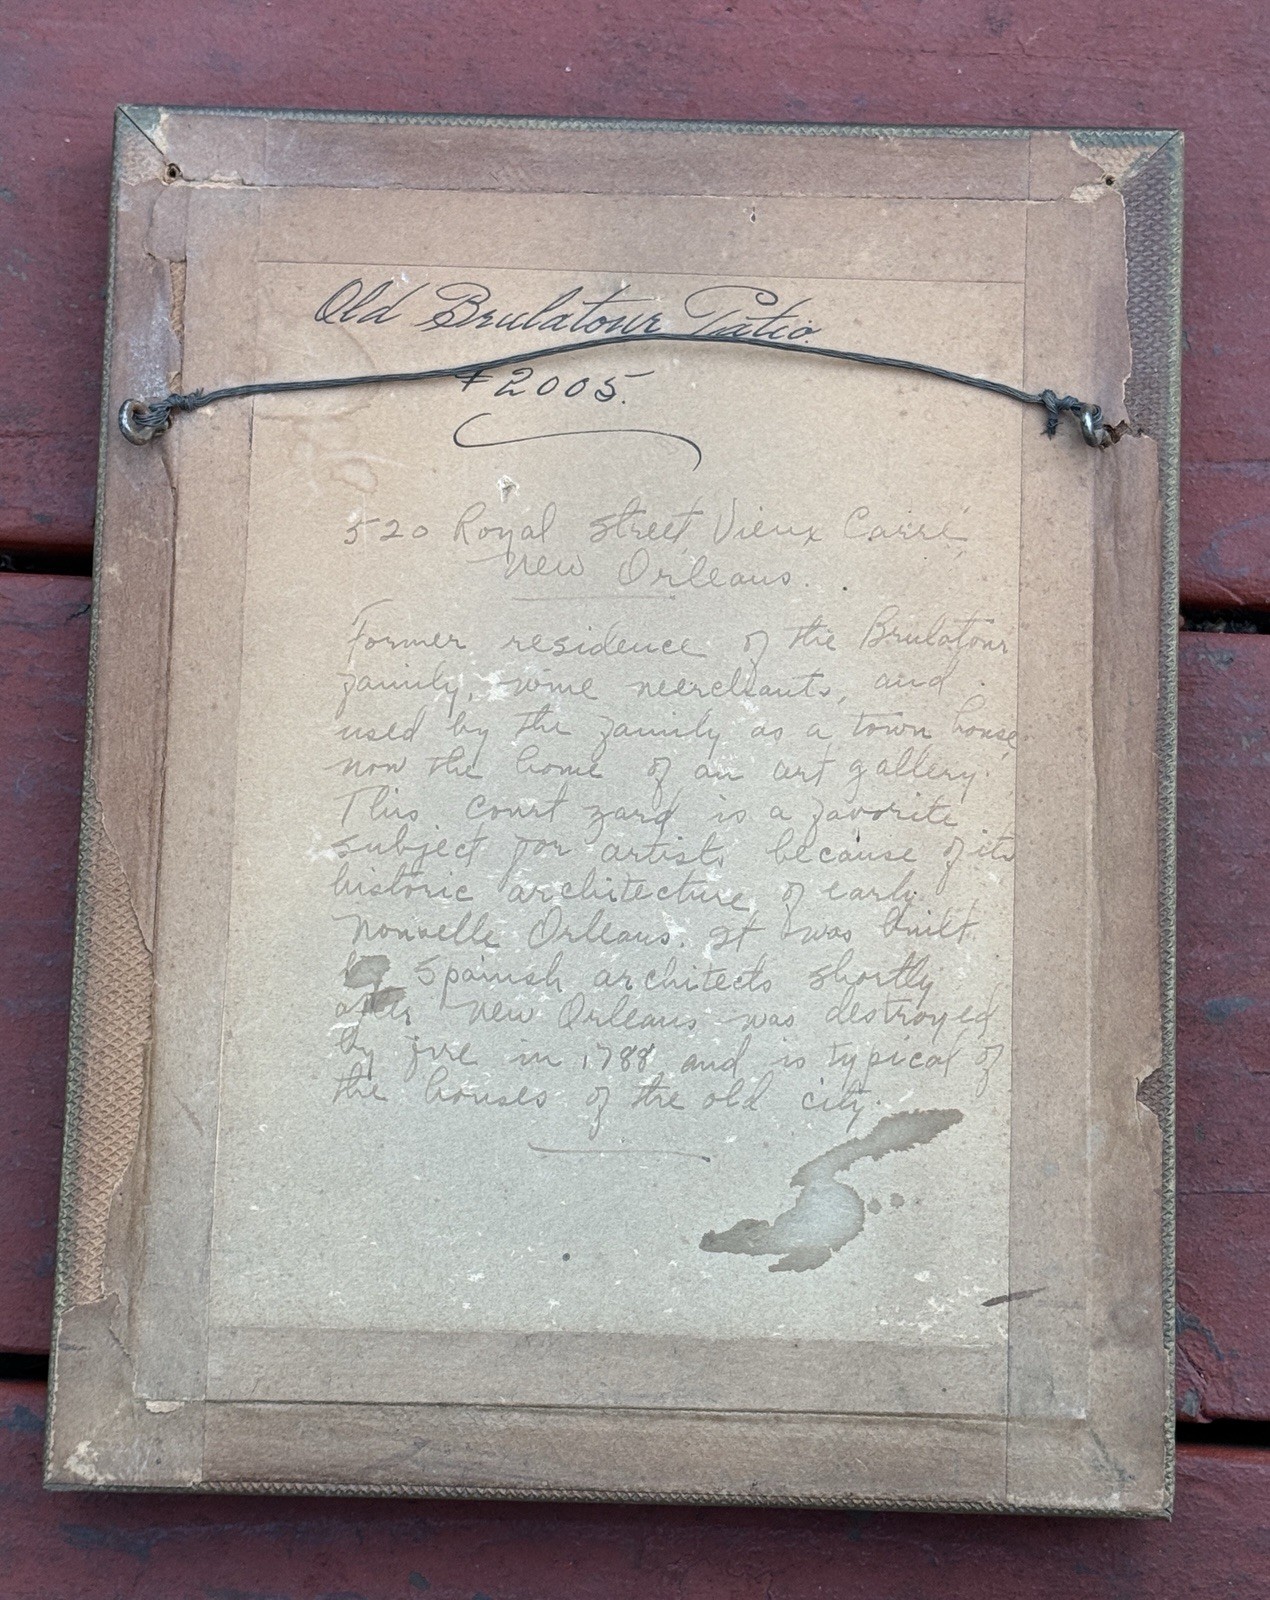 Old Brulatour Patio.
#2005.
520 Royal Street, Vieux Carré,
New Orleans.
Former residence of the Brulatour
family, wine merchants, and
used by the family as a town house,
now the home of an art gallery.
This court yard is a favorite
subject for artists because of its
historic architecture of early
Nouvelle Orleans. It was built
by Spanish architects shortly
after New Orleans was destroyed
by fire in 1788 and is typical of
the houses of the old city.